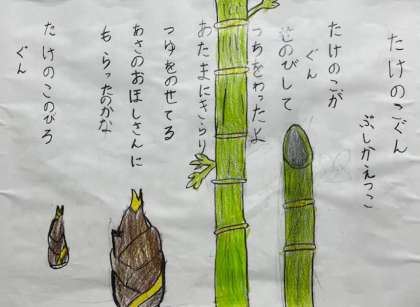 たけのこぐん
ぶしかえっこ
たけのこが
ぐん
せのびして
つちをわったよ
あたまにきらり
つゆをのせてる
あさのおほしさんに
もらったのかな
たけのこのびろ
ぐん